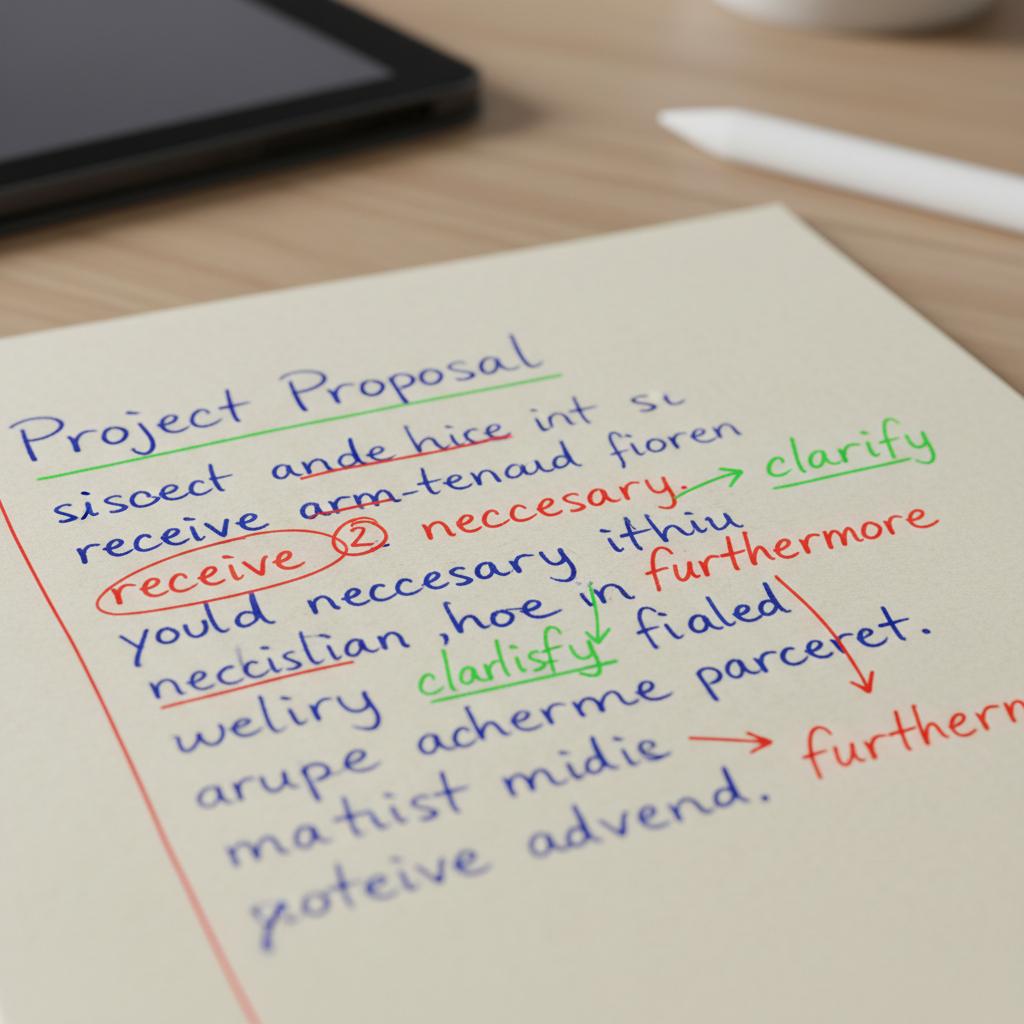 Project Proposal
siscect ande hice int
receive arm-tenaud fioren
receive 2 neccesary. → clarify
yould neccesary ithiu
neckistian ,hoe in furthermore
weliry clarlisfy fialed
arupe acherme parceret.
mathist midie → furthern
yoteive advend.